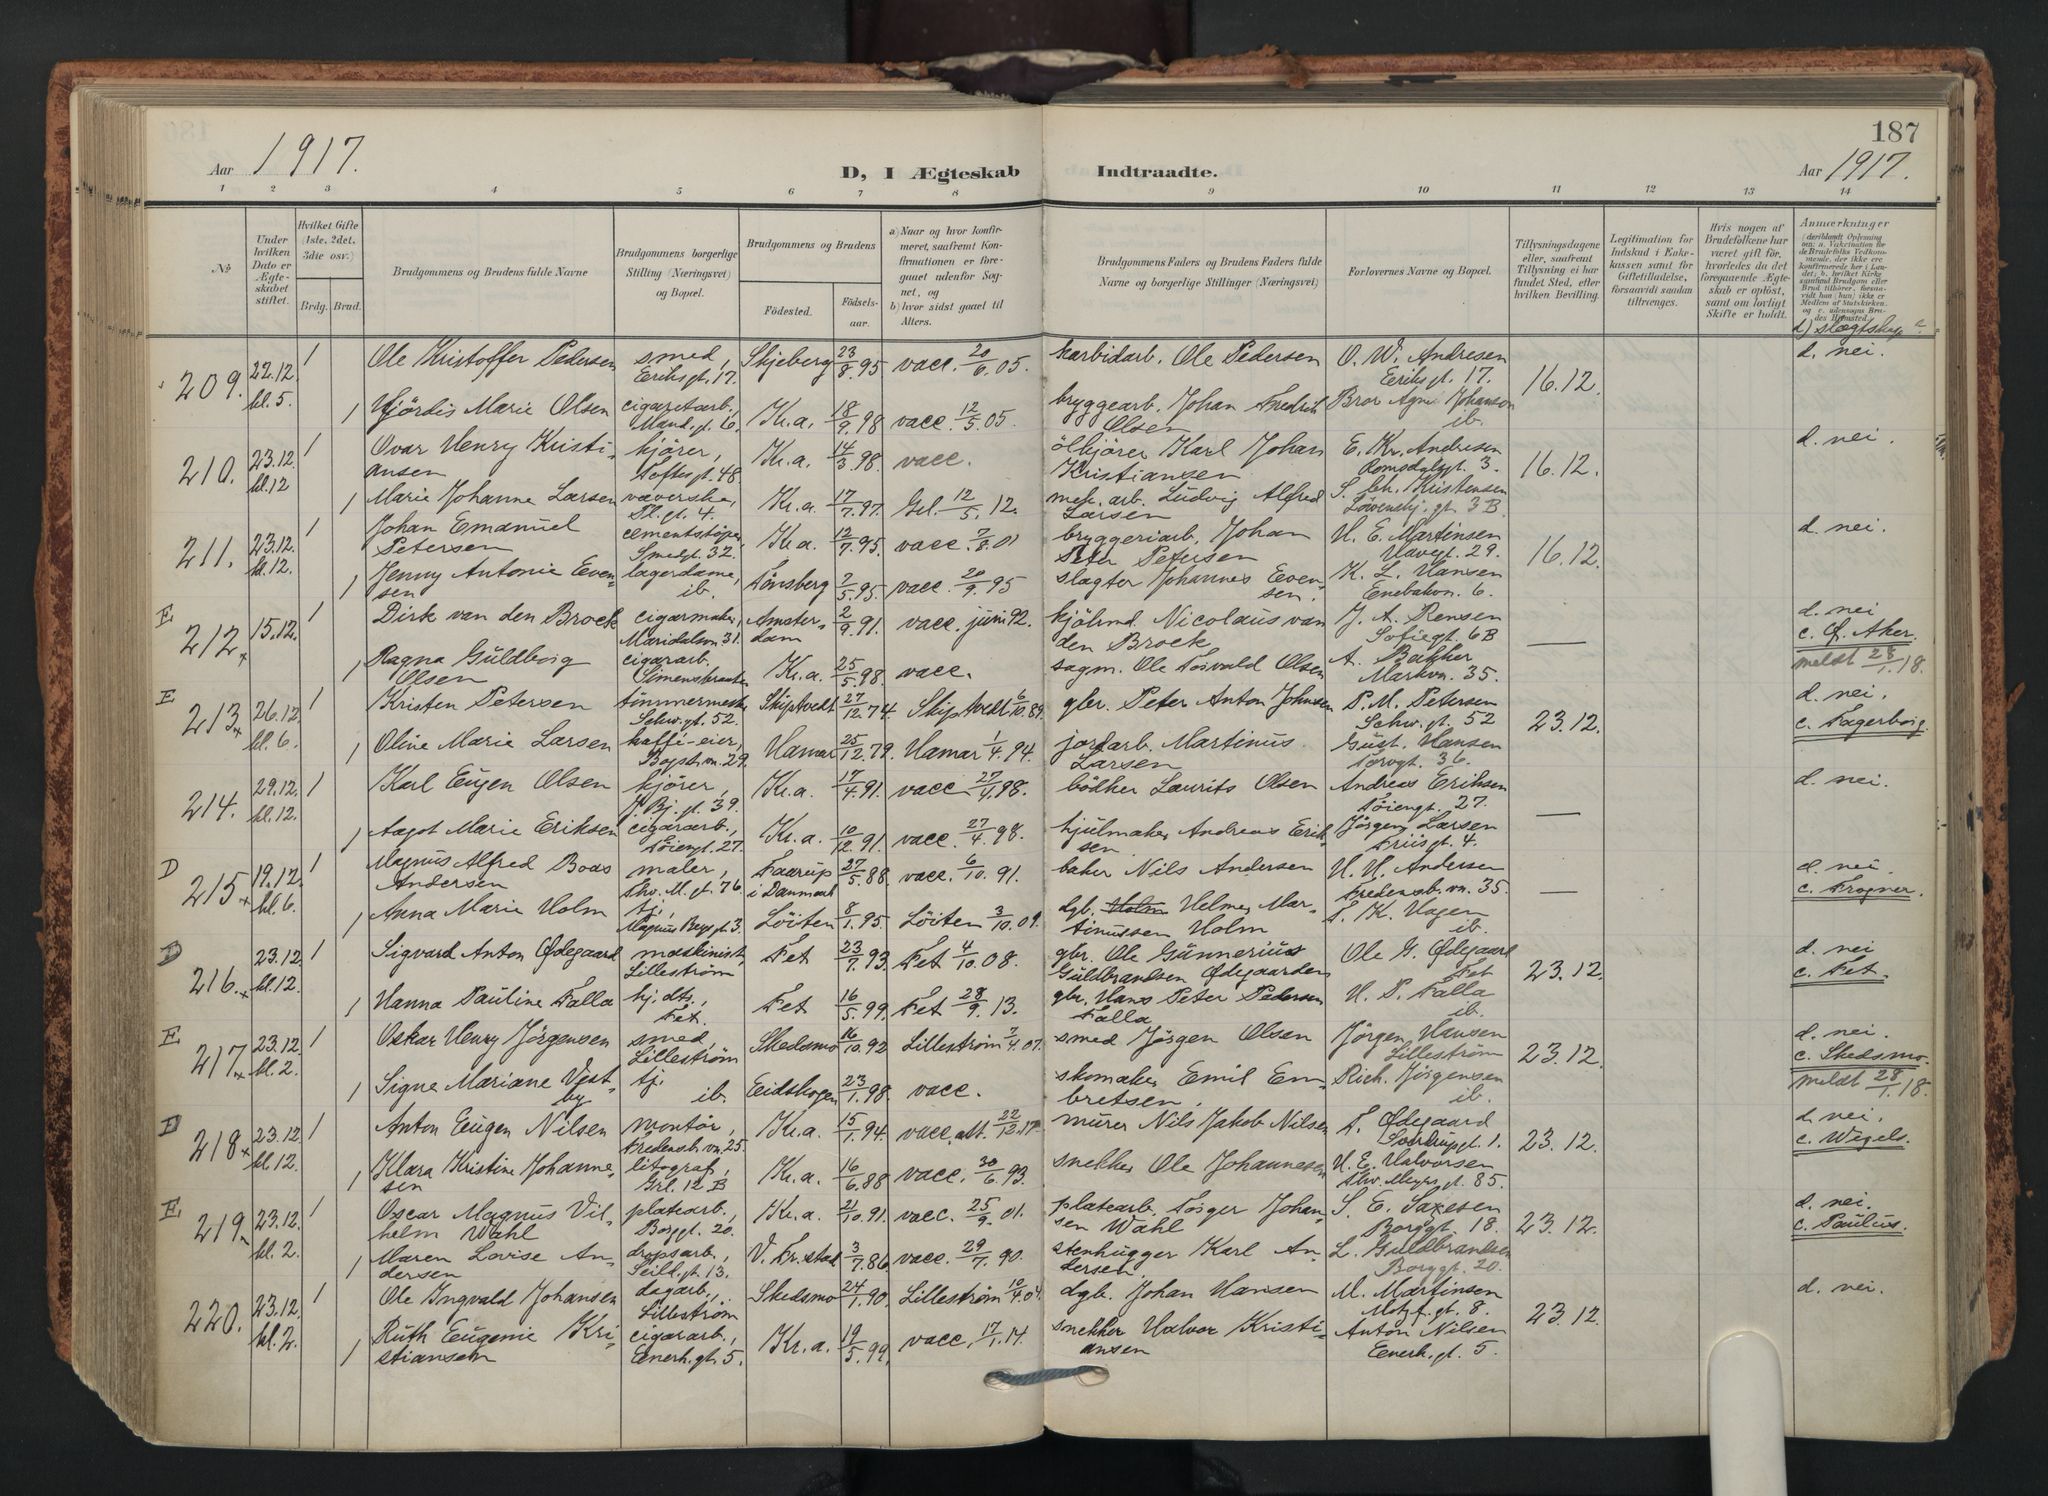 187
Aar 1917.
D, I Ægteskab Indtraadte.
Aar 1917.
1 2 3 4 5 6 7 8 9 10 11 12 13 14
No
Under hvilken Dato er Ægteskabet stiftet.
Hvilket Gifte (1ste, 2det, 3die osv.)
Brdg. Brud.
Brudgommens og Brudens fulde Navne
Brudgommens borgerlige Stilling (Næringsvei) og Bopæl.
Brudgommens og Brudens
Fødested.
Fødselsaar.
a) Naar og hvor konfirmeret, saafremt Konfirmationen er foregaaet udenfor Sognet, og
b) hvor sidst gaaet til Alters.
Brudgommens Faders og Brudens Faders fulde Navne og borgerlige Stillinger (Næringsvei)
Forlovernes Navne og Bopæl.
Tillysningsdagene eller, saafremt Tillysning ei har fundet Sted, efter hvilken Bevilling.
Legitimation for Indskud i Enkekassen samt for Giftetilladelse, forsaavidt saadan tiltrænges.
Hvis nogen af Brudefolkene har været gift før, hvorledes da det foregaaende Ægteskab er opløst, samt om lovligt Skifte er holdt.
Anmærkninger
d) slægtskap
209. 22.12. kl. 5. 1 Ole Kristoffer Pedersen smed, Eriksgt. 17. Skjeberg 23/8 95 vacc. 20/6 05. karbidarb. Ole Pedersen O. W. Andresen Eriksgt. 17. 16.12. d. nei.
1 Hjördis Marie Olsen cigaretarb. Mand. gt. 6. Kr.a. 18/9 98 vacc. 12/5 05. bryggearb. Johan Fredrik Olsen Bror Johanson ib.
210. 23.12. kl. 12 1 Ovar Henry Kristiansen kjører, Toftesgt. 48 Kr.a. 14/3 98. vacc. ölkjører Karl Johan Kristiansen E. Kr. Andresen Romsdalsgt. 3. 16.12. d. nei.
1 Marie Johanne Larsen væverske, Pl. gt. 4. Kr.a. 17/7 97. Gel. 12/5. 12. mek. arb. Ludvig Alfred Larsen S. Chr. Kristensen Løvenskj. gt. 3 B.
211. 23.12. kl. 12. 1 Johan Emanuel Petersen cementstøper, Smedgt. 32. Kr.a. 12/7 95. vacc. 7/8 01 bryggeriarb. Johan Peter Petersen H. E. Martinsen Havegt. 29. 16.12. d. nei.
1 Jenny Antonie Evensen lagerdame, ib. Tönsberg 2/5 95. vacc. 20/9 95 slagter Johannes Evensen. K. L. Hansen Enebakvn. 6.
E 212 x 15.12. 1 Dirk van den Broek cigarmaker, Maridalsvn 31. Amsterdam 2/9 91. vacc. juni 92. kjölmd. Nicolaus van den Broek J. A. Rensen Sofiegt. 6 B — d. nei c. G. Aker. meldt 28/1. 18.
1 Ragna Guldborg Olsen cigararb. Simensbraaten Kr.a. 25/5 98. vacc. sagm. Ole Torvald Olsen A. Bakker Markvn. 35.
E 213 x 26.12. kl. 6. 1 Kristen Petersen tömmermester Schw. gt. 52. Skiptvedt 27/12 74. Skiptvedt 6/10 89. gbr. Peter Anton Johnsen P. M. Petersen Schw. gt. 52 23.12. d. nei. c. Fagerborg.
1 Oline Marie Larsen kaffé-eier, Bogst. vn. 29. Hamar 25/12 79. Hamar 1/4 94. jordarb. Martinus Larsen Gust. Hansen Torvgt. 36.
214. 29.12. kl. 12. 1 Karl Eugen Olsen kjører, J. Bj. gt. 39. Kr.a. 17/4 91. vacc. 27/4 98. bödker Laurits Olsen Andreas Eriksen Tøiengt. 27. — d. nei.
1 Aagot Marie Eriksen cigararb., Tøiengt. 27. Kr.a. 10/12 91. vacc. 27/4. 98. hjulmaker Andreas Eriksen. Jörgen Larsen Friisgt. 4.
D 215 x 19.12. kl. 6. 1 Magnus Alfred Boas Andersen maler, Thv. M. gt. 76. Faarup i Danmark 27/5 88. vacc. 6/10. 91. baker Nils Andersen H. H. Andersen Fredensb. vn. 35. — d. nei c. Frogner.
1 Anna Marie Holm tj., Magnus Bergs gt. 3. Löiten 8/1 95. Löiten 3/10 09. dgb. Holm Helmer Martinussen Holm T. K. Hagen ib.
D 216. x 23.12. kl. 12. 1 Sigvard Anton Ødegaard maskinist, Lilleström Fet 23/7 93. Fet 4/10. 08. gbr. Ole Gunnerius Guldbrandsen Ødegaarden Ole G. Ødegaard Fet 23.12. d. nei c. Fet.
1 Hanna Pauline Falla hj. dtr., Fet. Fet 16/5 99. Fet 28/9. 13. gbr. Hans Peter Pedersen Falla H. P. Falla ib.
E 217 x 23.12. kl. 2. 1 Oskar Henry Jörgensen smed, Lilleström Skedsmo 16/10 92 Lilleström 7/4 07. smed Jörgen Olsen Jörgen Hansen Lilleström 23.12. d. nei. c. Skedsmo. meldt 28/1. 18.
1 Signe Mariane Vestby tj. ib. Eidskogen 23/1 98. vacc. skomaker Emil Embretsen. Rich. Jörgensen ib.
D 218 x 23.12. kl. 12. 1 Anton Eugen Nilsen montør, Fredensb. vn. 25. Kr.a. 15/1 94. vacc. att. 22/12. 17. murer Nils Jakob Nilsen T. Ødegaard Sverdrupgt. 1. 23.12. d. nei. c. Wexels.
1 Klara Kristine Johannesen litograf, Grl. 12 B Kr.a. 16/6 88 vacc. 30/6. 93. snekker Ole Johannesen H. E. Halvorsen Thv. Meyers gt. 85.
E 219 x 23.12. kl. 2. 1 Oscar Magnus Vilhelm Wahl platearb., Borggt. 20. Kr.a. 21/10 91. vacc. 25/9. 01. platearb. Torger Johansen Wahl S. E. Saxesen Borggt. 18. 23.12. d. nei. c. Paulus.
1 Maren Lovise Andersen dropsarb., Seild. gt. 13. V. Fr. stad 3/7 86. vacc. 29/7. 90. stenhugger Karl Andersen. L. Guldbrandsen Borggt. 20.
220. 23.12. kl. 2. 1 Ole Ingvald Johansen dagarb., Lilleström Skedsmo 24/1 90. Lilleström 10/4 04. dgb. Johan Hansen M. Martinsen Motzf. gt. 8. 23.12. d. nei.
1 Ruth Eugenie Kristiansen cigararb., Enerh. gt. 5. Kr.a. 19/5 99. vacc. 17/1. 14. snekker Halvor Kristiansen Anton Nilsen Enerh. gt. 5.